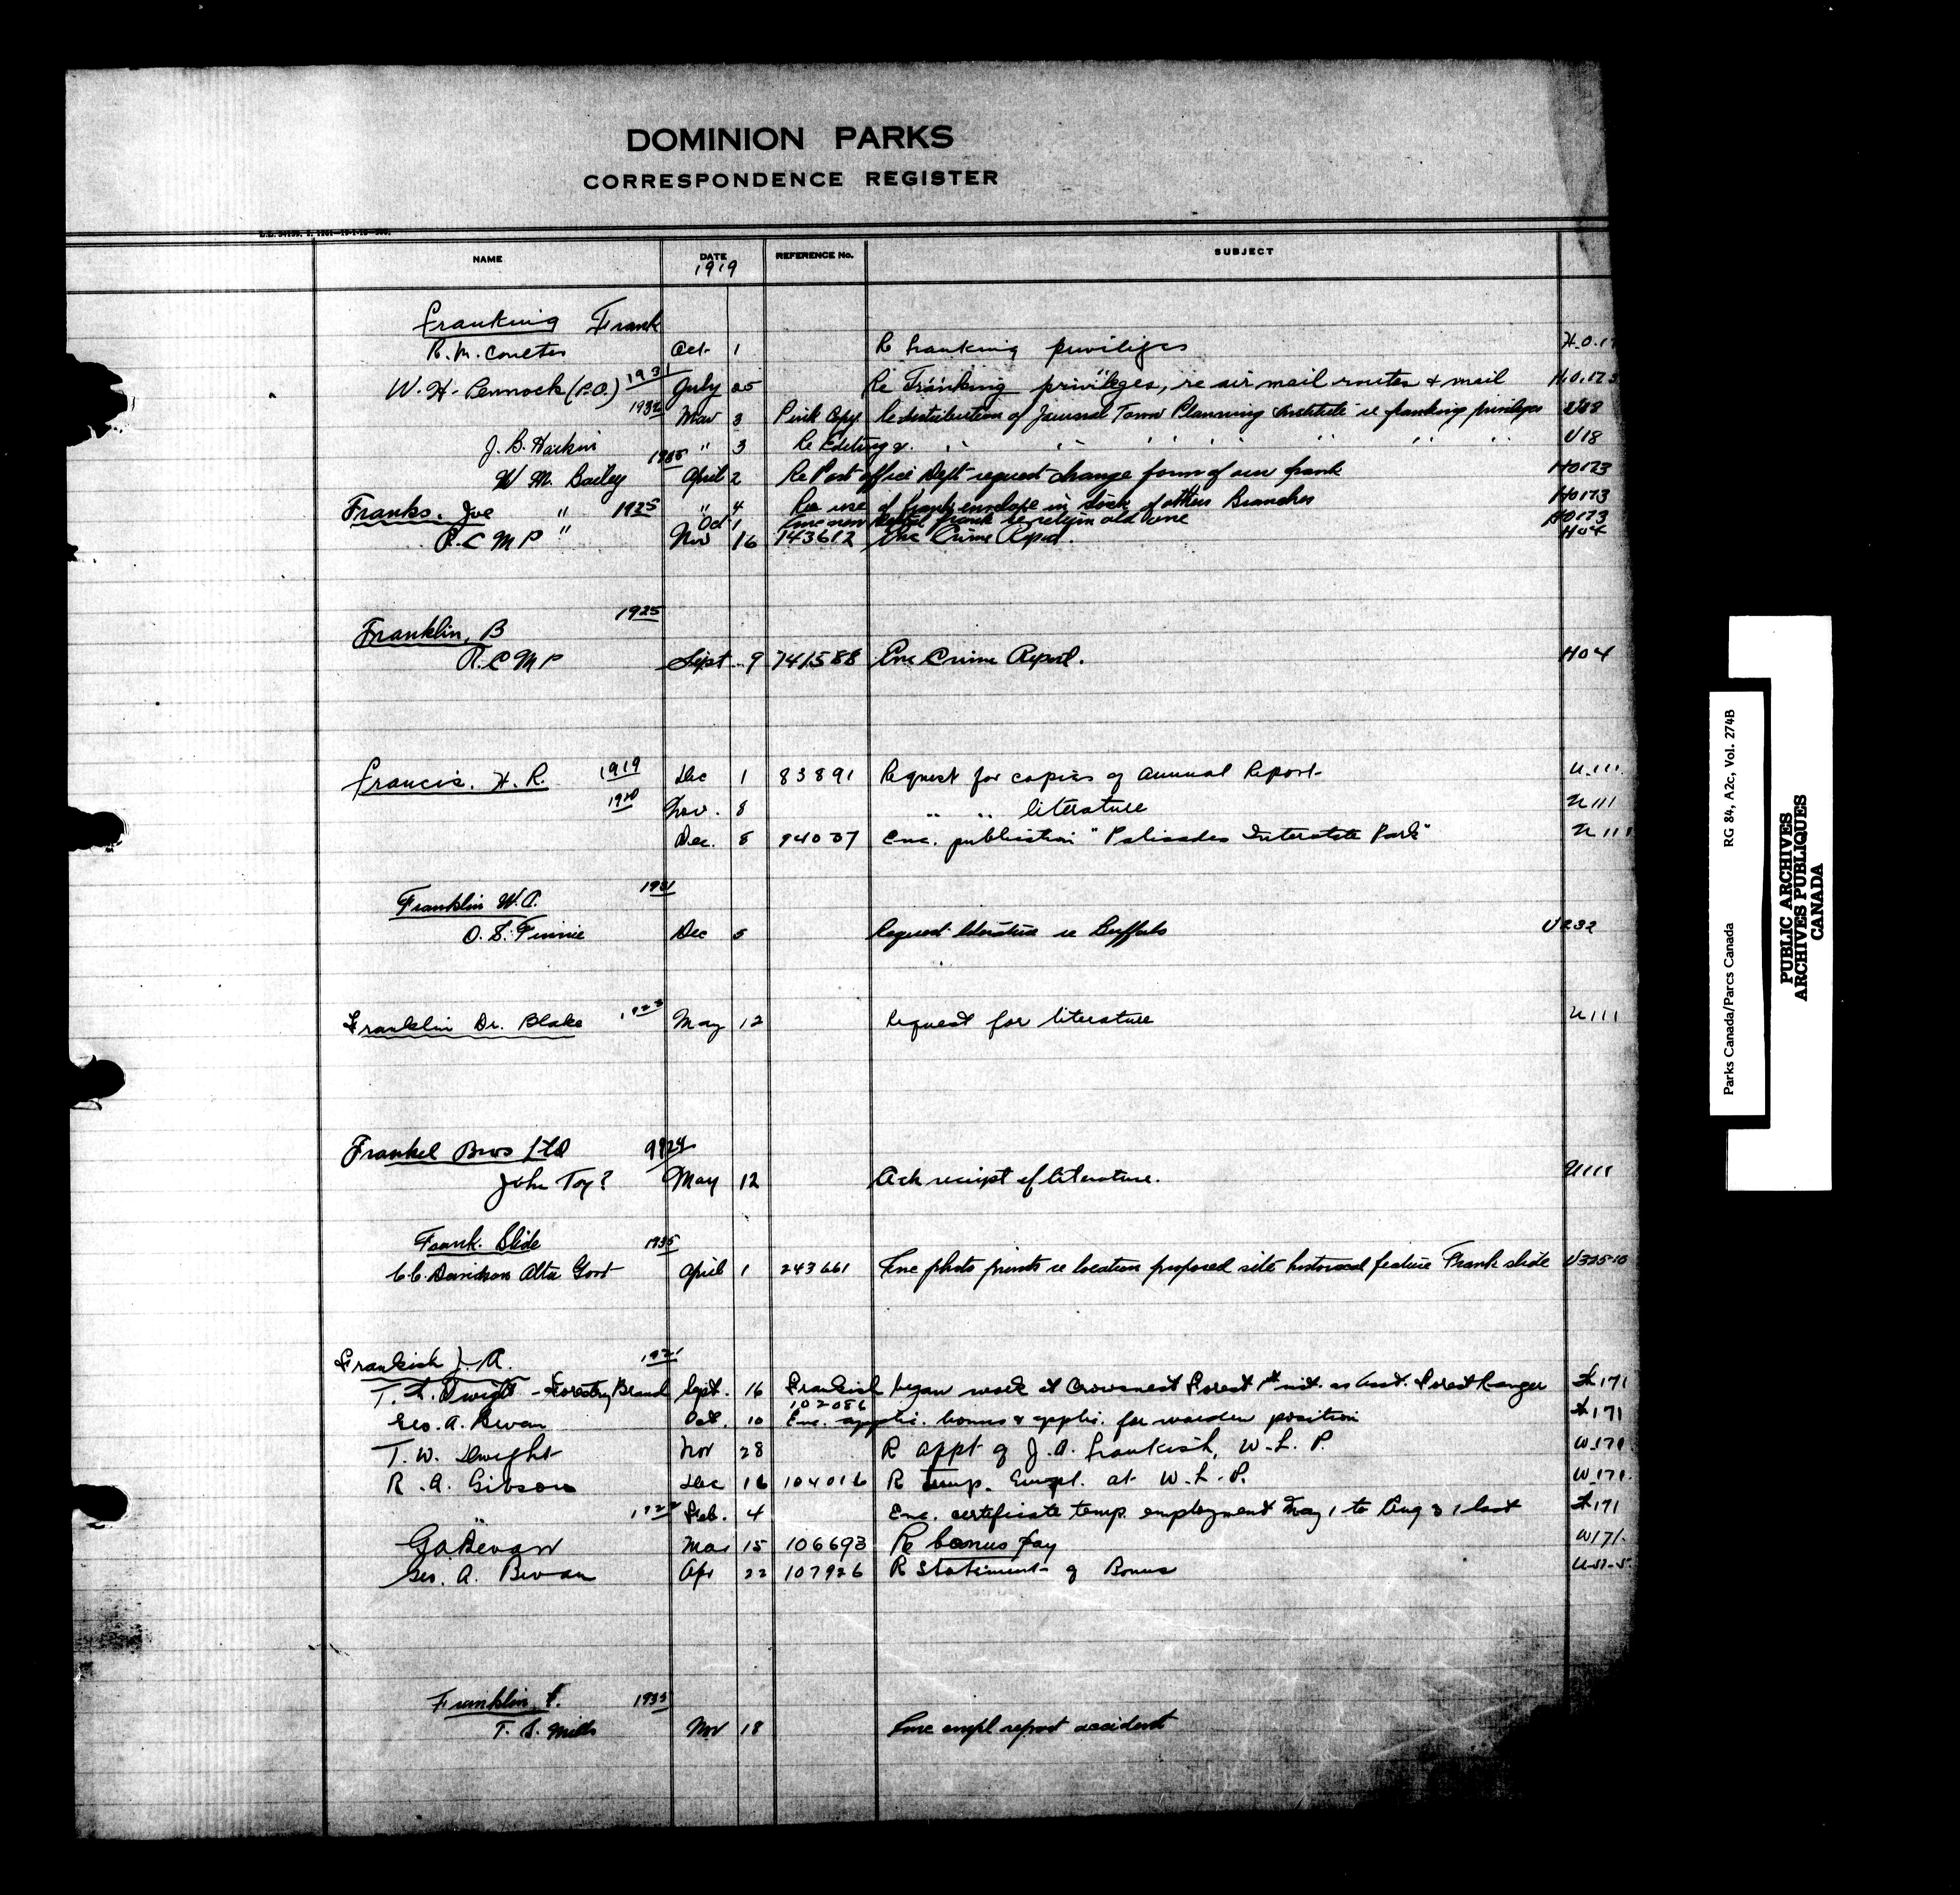 DOMINION PARKS
CORRESPONDENCE REGISTER
NAME DATE REFERENCE No. SUBJECT
1919
Franking Frank
R. M. Coulter Oct. 1 R Franking priviliges H.O.17
W. H. Pennock (P.O.) 1931 July 25 Re Franking privileges, re air mail routes & mail H.O.173
1932 Mar 3 Pink Copy Re distribution of Journal Town Planning Institute re franking privileges U18
J. B. Harkin " 3 Re Editing & " " " " " " " " U18
W M. Bailey 1935 April 2 Re Post office Dept request change form of our frank HO173
" " 4 Re use of frank envelope in stock of others Branches HO173
Oct 1 Enc new frank re return old one HO173
Franks. Joe 1925
R.C M P " Nov 16 743612 Enc Crime Report. HO4
1925
Franklin, B
R.C M P Sept 9 741588 Enc Crime Report. HO4
Francis. H. R. 1919 Dec 1 83891 Request for copies of Annual Report U.111.
1920 Nov. 8 " " literature U111
Dec. 8 94007 Enc. publication "Palisades Interstate Park" U111
Franklin W. A. 1921
O. S. Finnie Dec 5 Request literature re Buffalo U232
Franklin Dr. Blake 1923 May 12 Request for literature U111
Frankel Bros Ltd 1924
John Toy? May 12 Ack receipt of literature. U111
Frank. Slide 1935
C.C. Davidson Alta Govt April 1 243661 Enc photo prints re location proposed site historical feature Frank slide U325-10
Frankish J. A. 1921
T. W. Dwight - Forestry Branch Sept. 16 Frankish began work at Crowsnest Forest 1st inst. as Asst. Forest Ranger W171
102086
Geo. A. Bevan Oct. 10 Enc. applic. bonus & applic. for warden position W171
T. W. Dwight Nov 28 R appt of J. A. Frankish, W. L. P. W.171
R. A. Gibson Dec 16 104016 R temp. Empl. at W. L. P. W.171.
" 1922 Feb. 4 Enc. certificate temp. employment May 1 to Aug 31 last W171
G A Bevan Mar 15 106693 Re bonus pay W171.
Geo. A. Bevan Apr 22 107926 R Statement of Bonus
Franklin, F. 1933
T. S. Mills Nov 18 Enc empl report accident
Parks Canada/Parcs Canada RG 84, A2c, Vol. 274B
PUBLIC ARCHIVES
ARCHIVES PUBLIQUES
CANADA